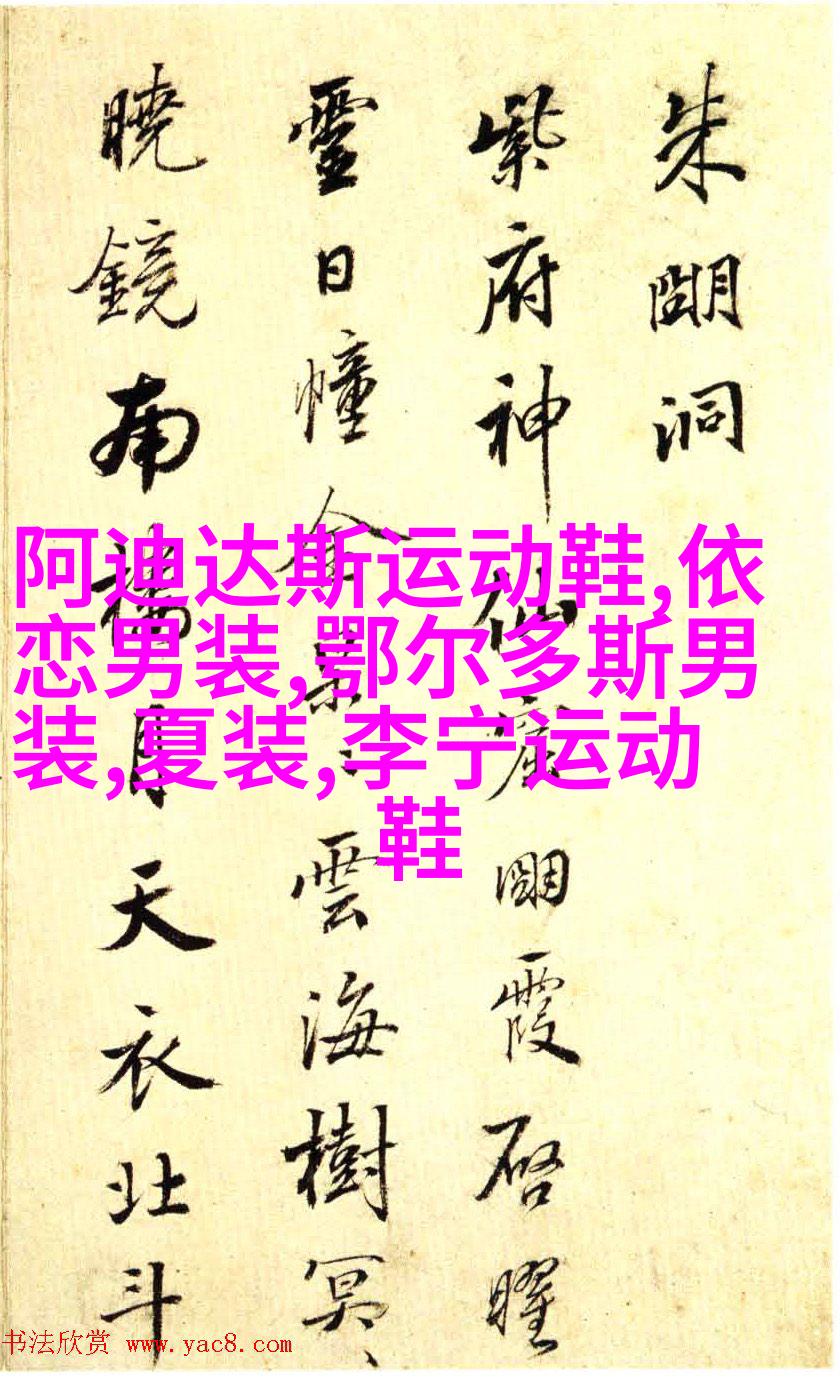 朱朙洞
紫府神仙窟朙霞啓曜
靈日幢金景〻雲海樹冥〻
曉鏡南月天衣北斗
阿迪达斯运动鞋,依
恋男装,鄂尔多斯男
装,夏装,李宁运动
鞋
书法欣赏 www.yac8.com